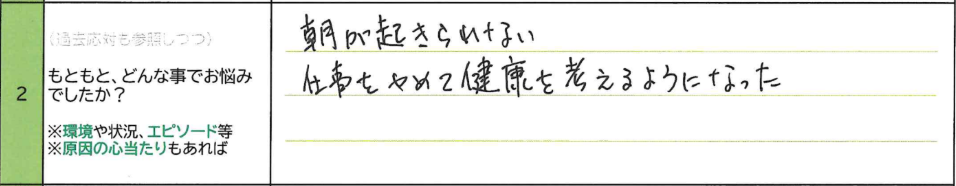 2
(過去応対も参照しつつ)
もともと、どんな事でお悩み
でしたか?
※環境や状況、エピソード等
※原因の心当たりもあれば
朝が起きられない
仕事をやめて健康を考えるようになった